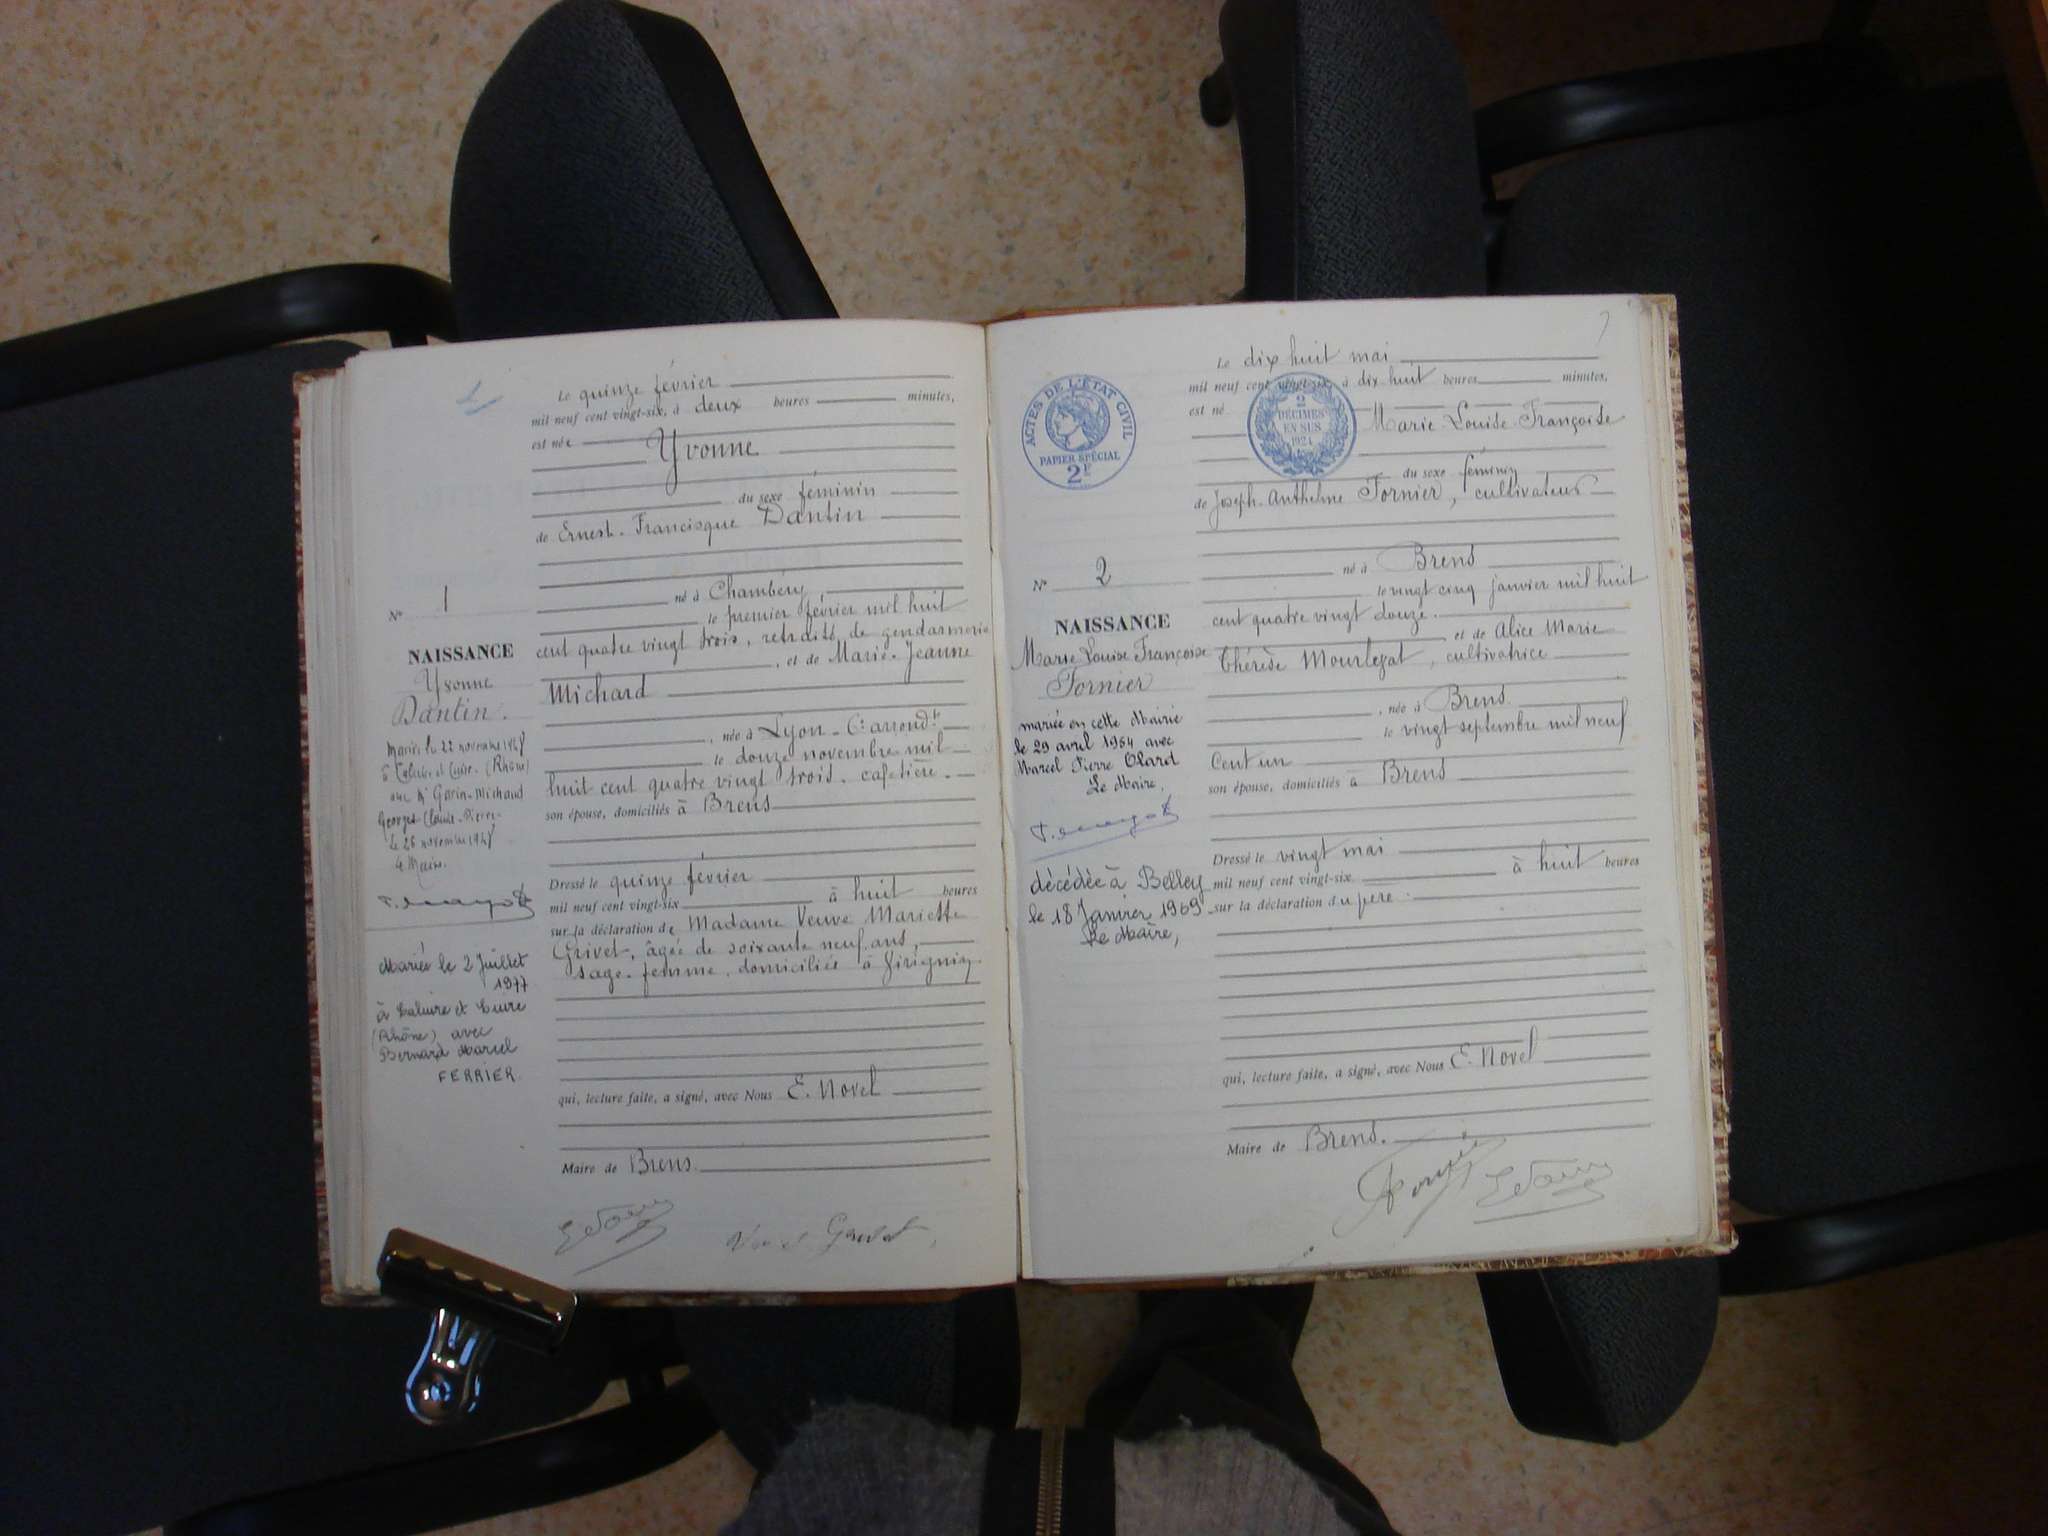 Le quinze février
mil neuf cent vingt-six, à deux heures minutes,
est née
Yvonne
du sexe féminin
de Ernest-Francisque Dantin
né à Chambéry
le premier février mil huit
cent quatre vingt trois, retraité de gendarmerie
, et de Marie-Jeanne
Michard
, née à Lyon
le douze novembre mil
huit cent quatre vingt trois. cafetière.
son épouse, domiciliés à Brens
Dressé le quinze février
mil neuf cent vingt-six à huit heures
sur la déclaration de Madame Veuve Mariette
Grivet, âgée de soixante neuf ans,
sage-femme, domiciliée à
qui, lecture faite, a signé, avec Nous E. Novel
Maire de Brens.
N° 1
NAISSANCE
Yvonne
Dantin.
(Rhône)
Garin-Michaud
Georges Claude-Pierre
le 26 novembre
Le Maire.
Mariée le 2 Juillet
1977
à Caluire et Cuire
(Rhône) avec
Bernard Marcel
FERRIER.
Le dix huit mai
mil neuf cent vingt-six, à dix huit heures minutes,
est né
Marie-Louise-Françoise
du sexe féminin
de Joseph-Anthelme Fornier, cultivateur
né à Brens
le vingt cinq janvier mil huit
cent quatre vingt douze.
et de Alice Marie
Thérèse Mourlezat, cultivatrice
, née à Brens
le vingt septembre mil neuf
cent un
son épouse, domiciliés à Brens
Dressé le vingt mai
mil neuf cent vingt-six à huit heures
sur la déclaration du père.
qui, lecture faite, a signé, avec Nous E. Novel
Maire de Brens.
ACTES DE L'ÉTAT CIVIL
PAPIER SPÉCIAL
2F
2
DÉCIMES
EN SUS
1924
N° 2
NAISSANCE
Marie Louise Françoise
Fornier
mariée en cette Mairie
le 29 avril 1954 avec
Marcel Pierre
Le Maire,
décédée à Belley
le 18 Janvier 1969
Le Maire,